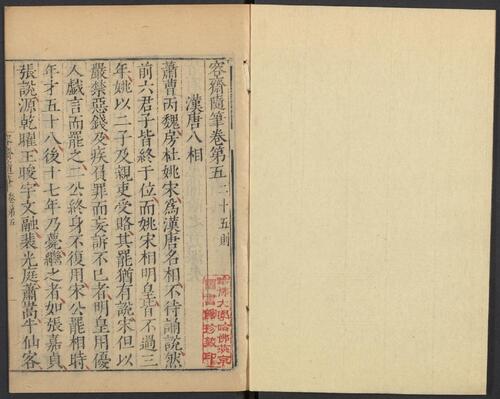 容齋隨筆卷第五 二十五則
漢唐八相
蕭曹丙魏房杜姚宋為漢唐名相不待誦說然
前六君子皆終于位而姚宋相明皇皆不過三
年姚以二子及親吏受賂其罷猶有說宋但以
嚴禁惡錢及疾負罪而妄訴不已者明皇用優
人戲言而罷之二公終身不復用宋公罷相時
年才五十八後十七年乃薨繼之者如張嘉貞
張說源乾曜王晙宇文融裴光庭蕭嵩牛仙客